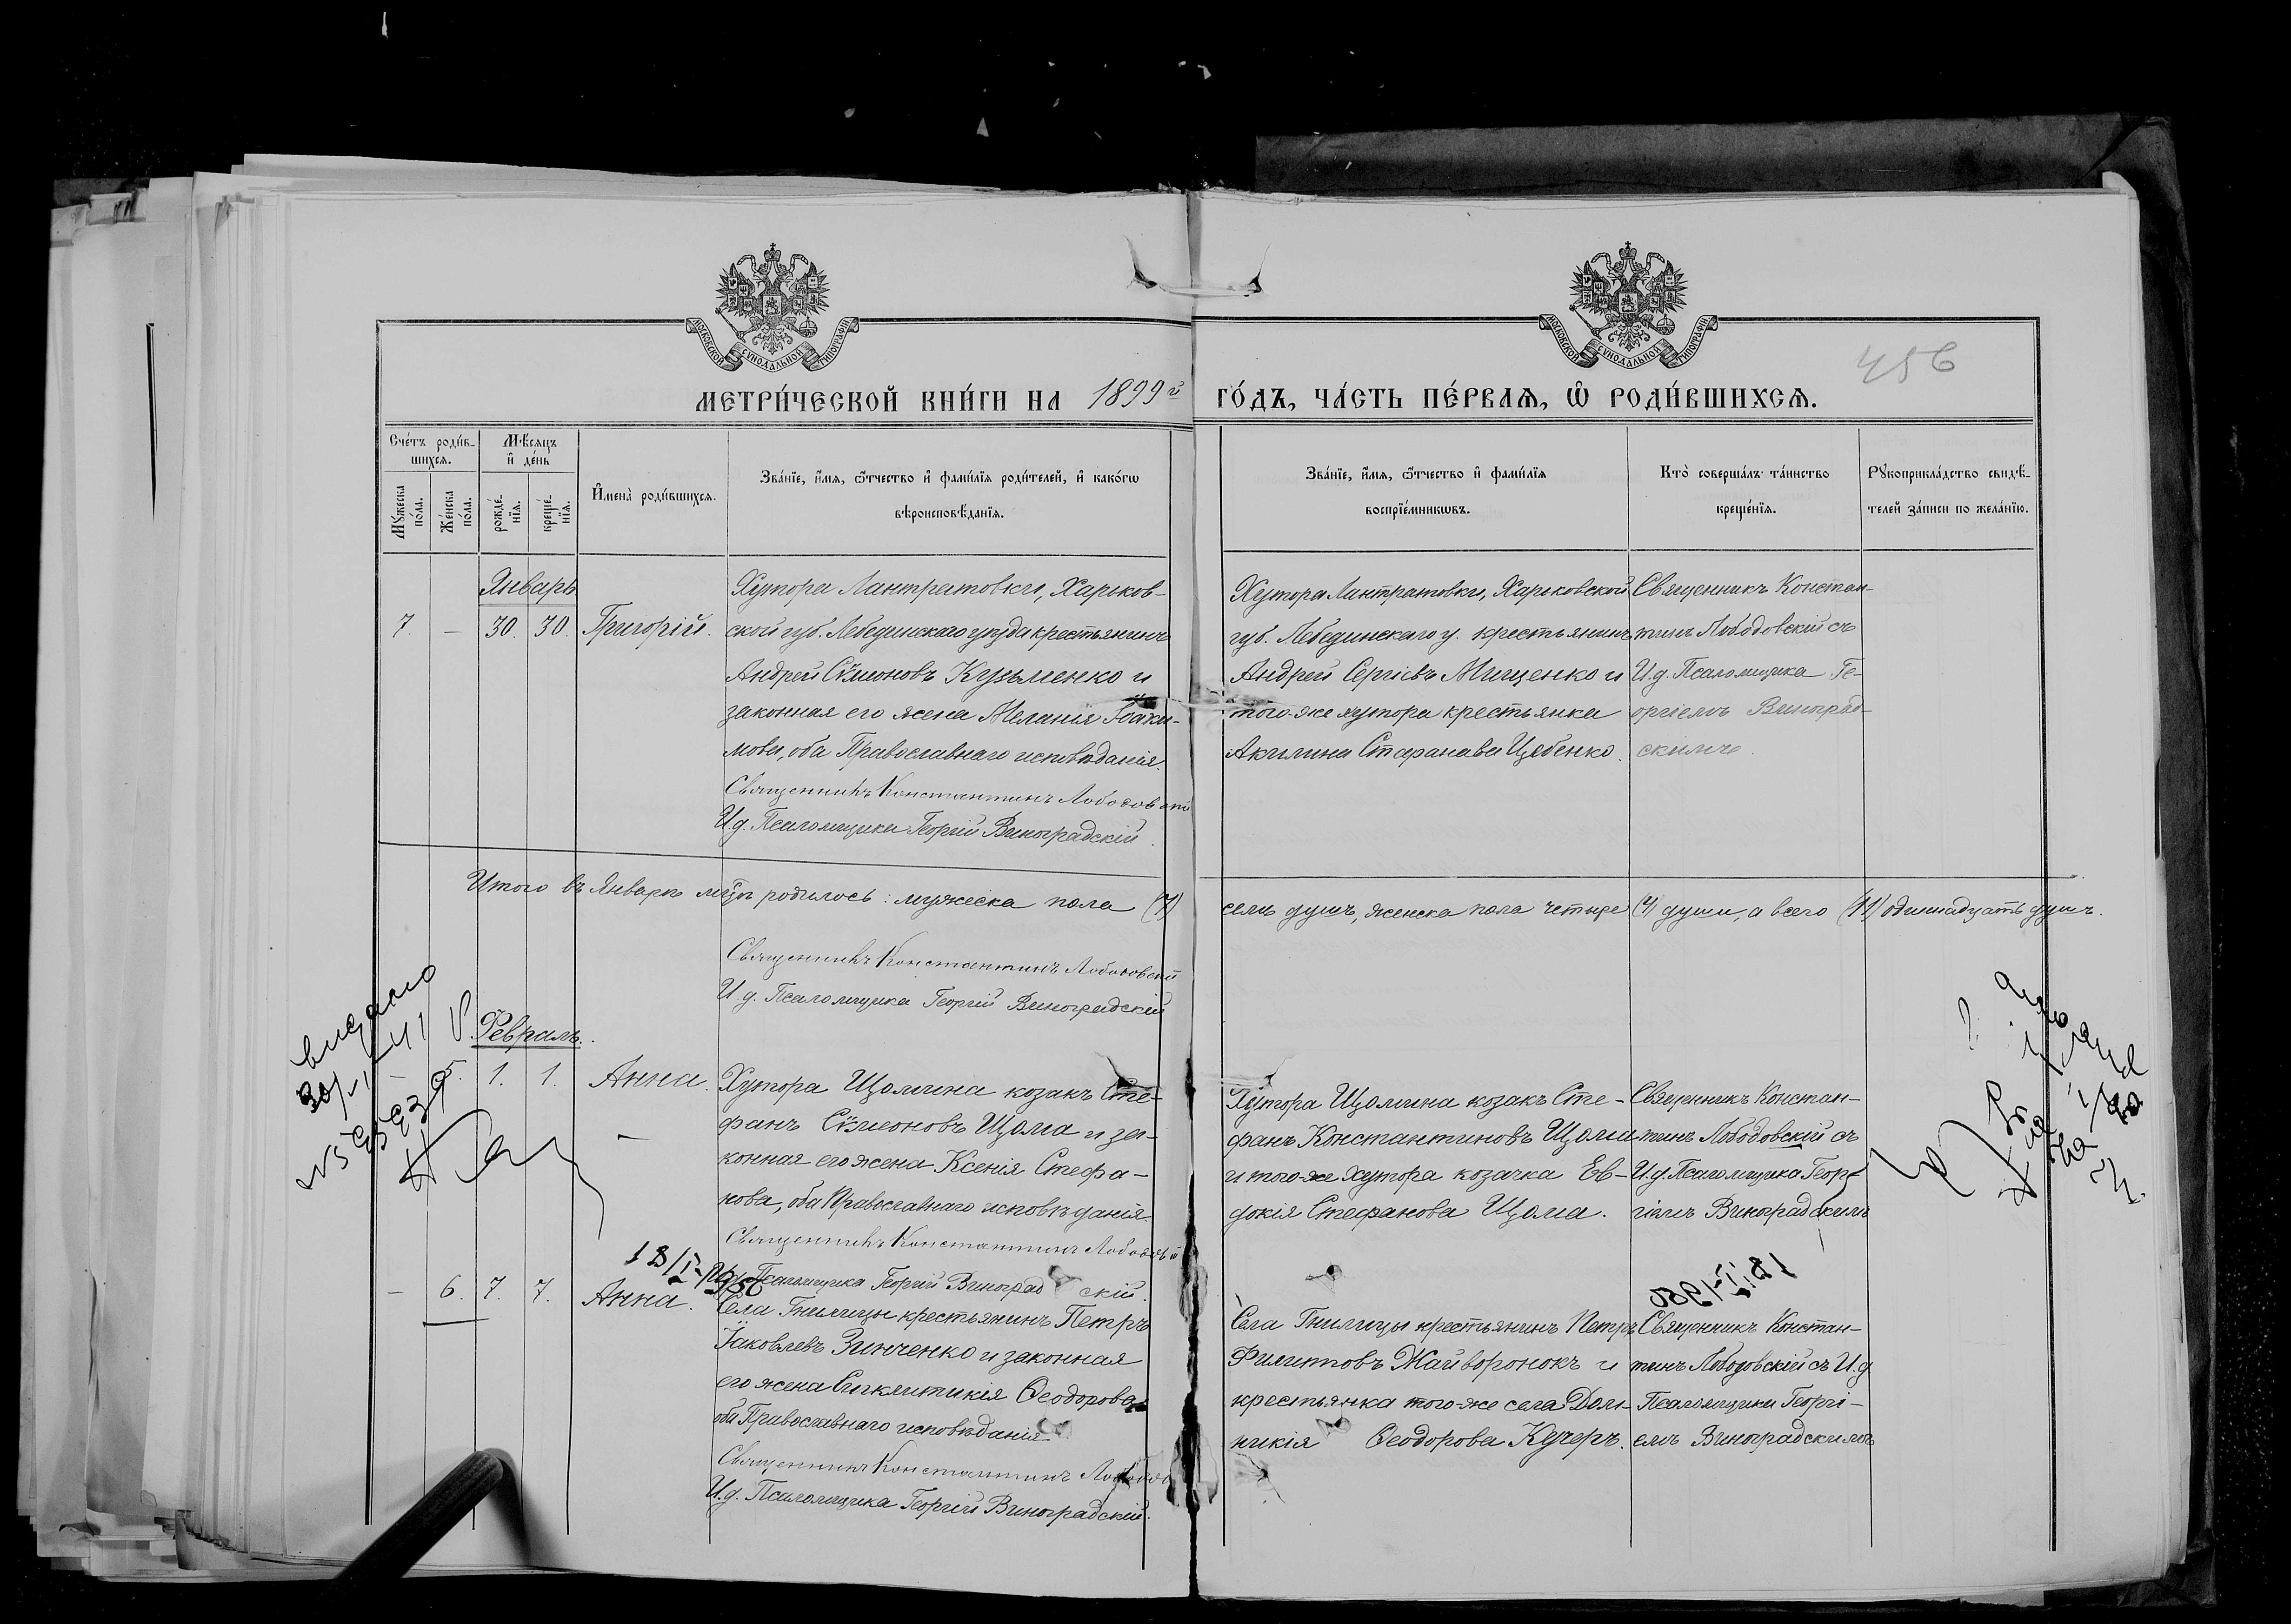 МОСКОВСКОЙ СѴНОДАЛЬНОЙ ТИПОГРАФІИ
МОСКОВСКОЙ СѴНОДАЛЬНОЙ ТИПОГРАФІИ
456
МЕТРИ́ЧЕСКОЙ КНИ́ГИ НА 1899й ГО́ДЪ, ЧА́СТЬ ПЕ́РВАѦ, Ѡ҆ РОДИ́ВШИХСѦ.
Сче́тъ роди́в-
шихсѧ.
Мѣ́сѧцъ
и҆ де́нь
Мꙋ́жеска по́ла.
Же́нска по́ла.
рожде́-
нїѧ.
креще́-
нїѧ.
И҆мена̀ роди́вшихсѧ.
Зва́нїе, и҆́мѧ, ѻ҆́тчество и҆ фамі́лїѧ роди́телей, и҆ како́гѡ
вѣроисповѣ́данїѧ.
Зва́нїе, и҆́мѧ, ѻ҆́тчество и҆ фамі́лїѧ
воспрїе́мникѡвъ.
Кто̀ соверша́лъ та́инство
креще́нїѧ.
Рꙋкоприкла́дство свидѣ́-
телей за́писи по жела́нїю.
Январь
7. — 30. 30. Григорій.
Хутора Лантратовки, Харьков-
ской губ. Лебединскаго уѣзда крестьянинъ
Андрей Сѵмеоновъ Кузьменко и
законная его жена Меланія Іоаки-
мова, оба Православнаго исповѣданія.
Священникъ Константинъ Лободовскій
И.д. Псаломщика Георгій Виноградскій.
Хутора Лантратовки, Харьковской
губ. Лебединскаго у. крестьянинъ
Андрей Сергіевъ Мищенко и
того-же хутора крестьянка
Акилина Стефанова Цебенко.
Священникъ Констан-
тинъ Лободовскій съ
И.д. Псаломщика Ге-
оргіемъ Виноград-
скимъ.
Итого въ Январѣ м-цѣ родилось: мужеска пола (7) семь душъ, женска пола четыре (4) души, а всего (11) одиннадцать душъ.
Священникъ Константинъ Лободовскій
И.д. Псаломщика Георгій Виноградскій
видано
Февраль.
— 5. 1. 1. Анна.
Хутора Щомина козакъ Сте-
фанъ Сѵмеоновъ Щома и за-
конная его жена Ксенія Стефа-
нова, оба Православнаго исповѣданія.
Священникъ Константинъ Лободовскій
И.д. Псаломщика Георгій Виноградскій.
Хутора Щомина козакъ Сте-
фанъ Константиновъ Щома
и того-же хутора козачка Ев-
докія Стефанова Щома.
Священникъ Констан-
тинъ Лободовскій съ
И.д. Псаломщика Геор-
гіемъ Виноградскимъ
18/I-1950
18/I-1950
— 6. 7. 7. Анна.
Села Гнилицы крестьянинъ Петръ
Іаковлевъ Зинченко и законная
его жена Сигклитикія Ѳеодорова
оба Православнаго исповѣданія
Священникъ Константинъ
И.д. Псаломщика Георгій Виноградскій.
Села Гнилицы крестьянинъ Петръ
Филиповъ Жайворонокъ и
крестьянка того-же села Дом-
никія Ѳеодорова Кучеръ.
Священникъ Констан-
тинъ Лободовскій съ И.д.
Псаломщика Георгі-
емъ Виноградскимъ